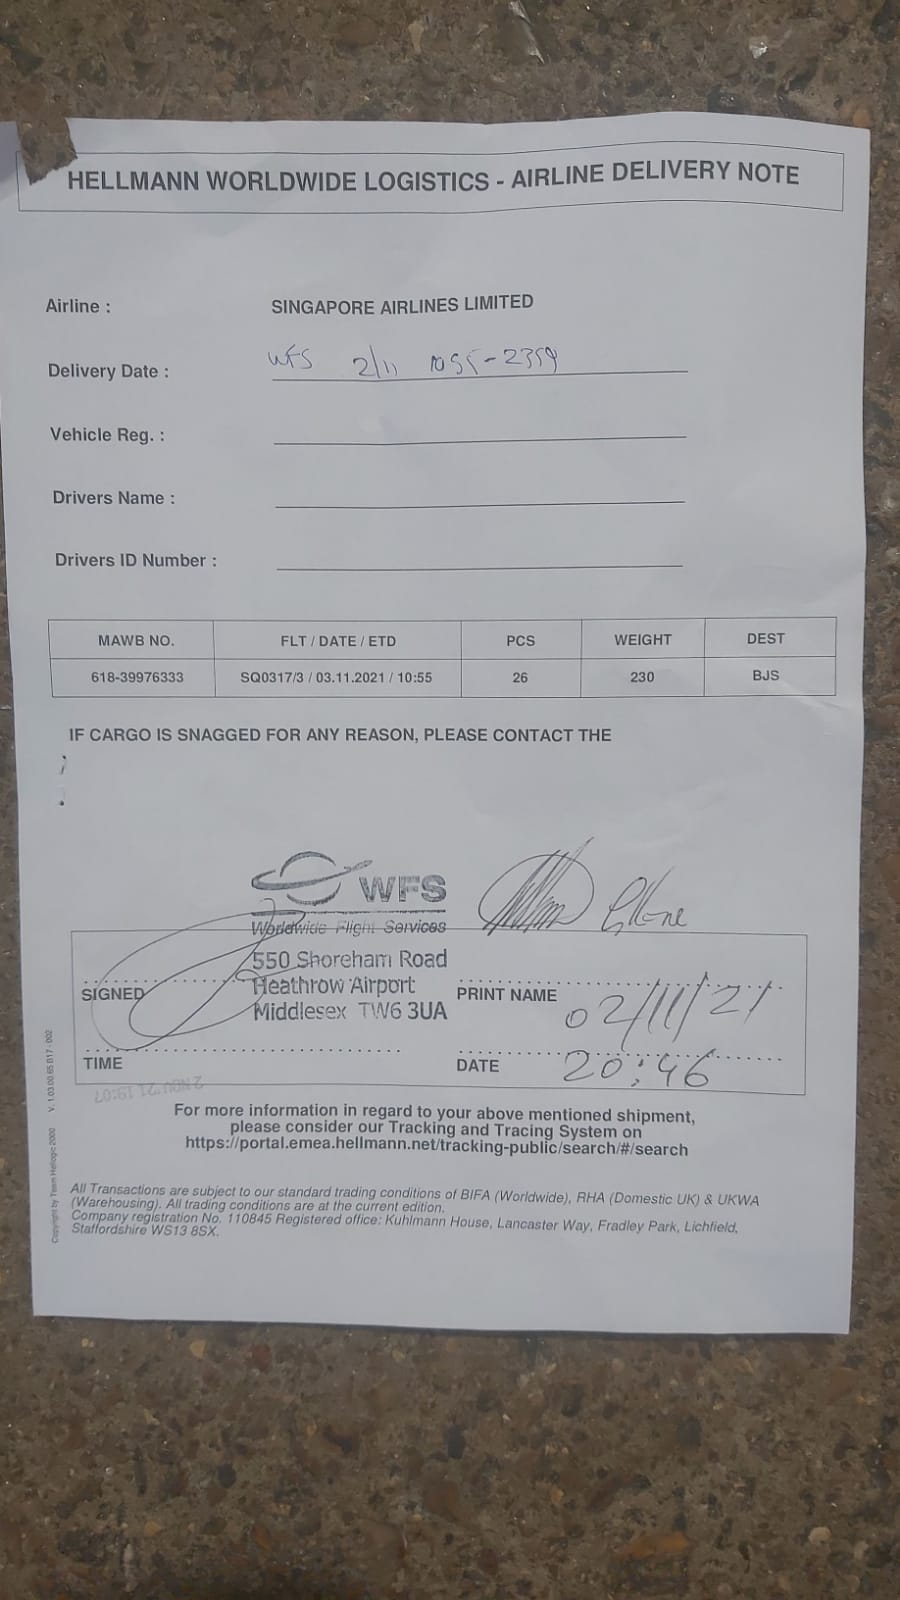 HELLMANN WORLDWIDE LOGISTICS - AIRLINE DELIVERY NOTE
Airline : SINGAPORE AIRLINES LIMITED
Delivery Date : WFS 2/11 1055-2359
Vehicle Reg. :
Drivers Name :
Drivers ID Number :
MAWB NO. FLT / DATE / ETD PCS WEIGHT DEST
618-39976333 SQ0317/3 / 03.11.2021 / 10:55 26 230 BJS
IF CARGO IS SNAGGED FOR ANY REASON, PLEASE CONTACT THE
WFS
Worldwide Flight Services
550 Shoreham Road
Heathrow Airport
Middlesex TW6 3UA
SIGNED PRINT NAME
02/11/21
TIME DATE 20:46
2 NOV '21 19:07
For more information in regard to your above mentioned shipment,
please consider our Tracking and Tracing System on
https://portal.emea.hellmann.net/tracking-public/search/#/search
All Transactions are subject to our standard trading conditions of BIFA (Worldwide), RHA (Domestic UK) & UKWA
(Warehousing). All trading conditions are at the current edition.
Company registration No. 110845 Registered office: Kuhlmann House, Lancaster Way, Fradley Park, Lichfield,
Staffordshire WS13 8SX.
Copyright by Team Hellogic 2000 V. 1.03.00.65 B17 - 002